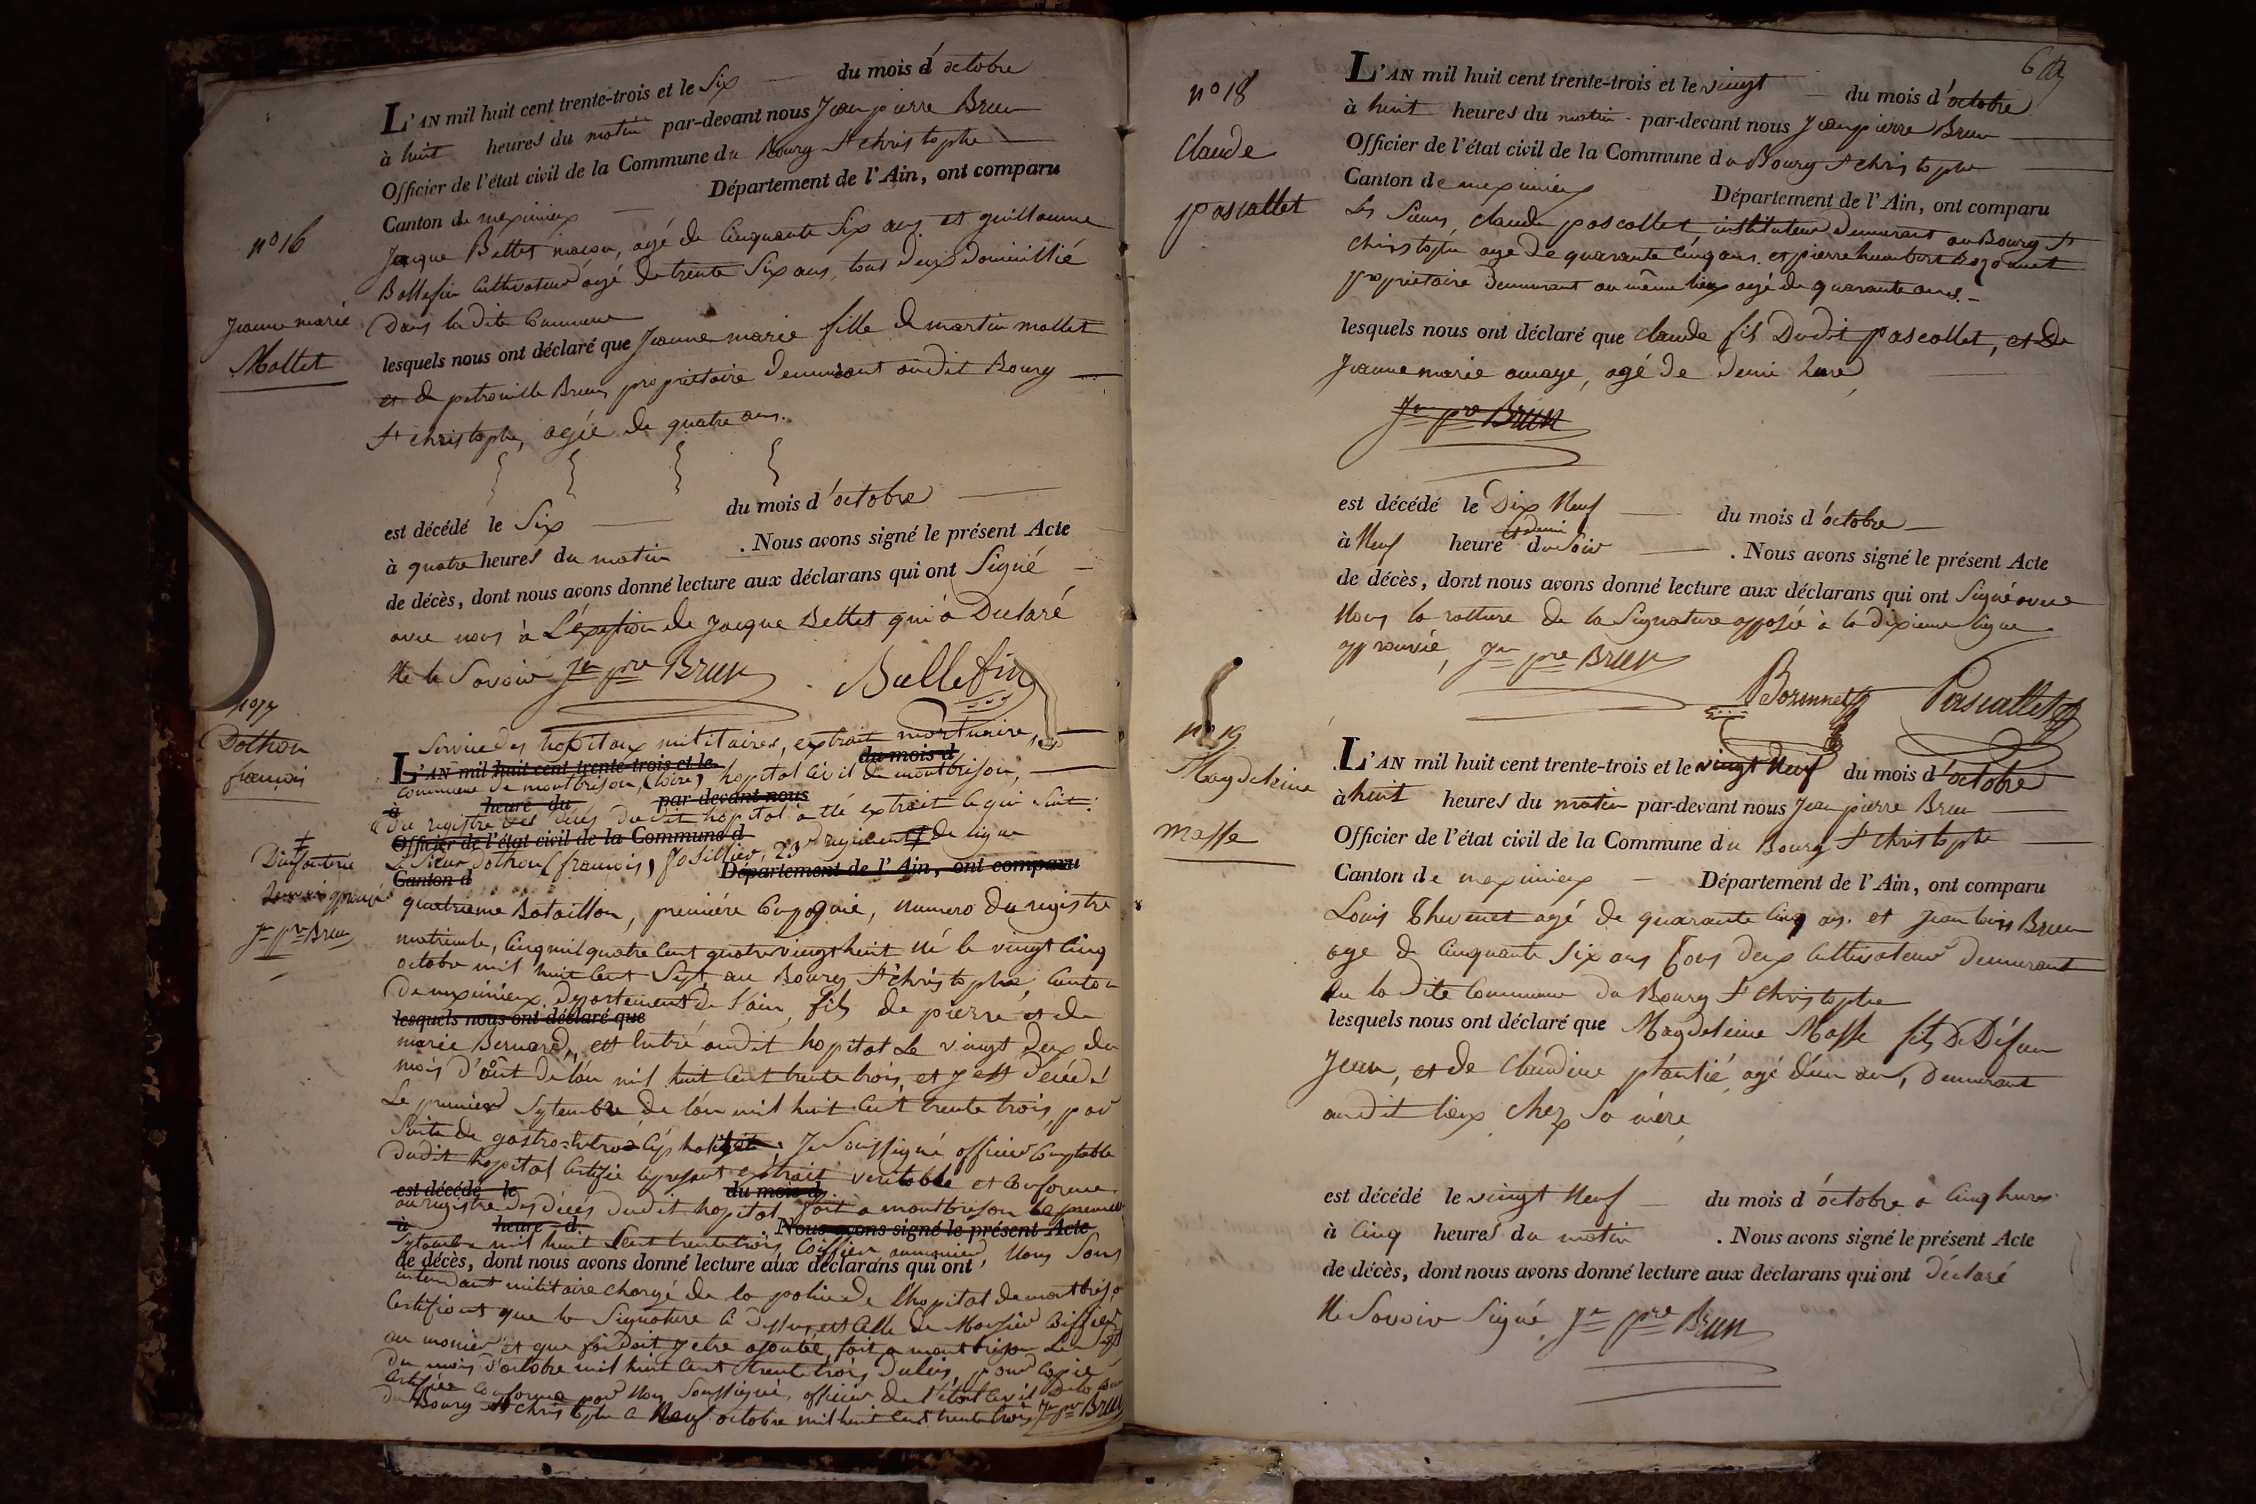 L'AN mil huit cent trente-trois et le Six du mois d'octobre
à huit heures du matin par-devant nous Jean pierre Brun
Officier de l'état civil de la Commune du Bourg St christophe
Canton de meximieux Département de l'Ain, ont comparu
Jacque Bellet macon, agé de Cinquante Six ans et guillaume
Ballefin Cultivateur agé de trente Six ans, tous deux Domicillié
Dans la dite Commune
lesquels nous ont déclaré que Jeanne marie fille de martin mollet
et de petronille Brun, propriétaire demeurant audit Bourg
St christophe, agée de quatre ans.
n° 16
Jeanne marie
Mollet
est décédé le Six du mois d'octobre
à quatre heures du matin . Nous avons signé le présent Acte
de décès, dont nous avons donné lecture aux déclarans qui ont Signé
avec nous à L'éxeption de Jacque Bellet qui a Déclaré
Ne le Savoir Jn pre Brun Ballefin
n° 17
Dothon
françois
Service des hopitaux militaires, extrait mortuaire,
L'AN mil huit cent trente-trois et le du mois d
Commune de montbrison, (Loire) hopital Civil de montbrison,
à heure du par-devant nous
du registre des décés du dit hopital a été extrait ce qui Suit:
Officier de l'état civil de la Commune d
Le Sieur Dothon (françois) fusillier, 23e regiment de ligne
Canton d Département de l'Ain, ont comparu
D'infanterie
approuvé
Jn pre Brun
quatrieme Bataillon, premiére Compagnie, numero du registre
matricule, Cinq mil quatre Cent quatre vingt huit né le vingt Cinq
octobre mil huit Cent Sept, au Bourg St christophe, Canton
De meximieux, departement de l'ain, fils de pierre et de
lesquels nous ont déclaré que
marie Bernard, est Entré audit hopital Le vingt deux du
mois d'aôut de l'an mil huit Cent trente trois, et y est décédé
Le premier Septembre de l'an mil huit Cent trente trois, par
Suite de gastro-, Je Soussigné officier Comptable
Dudit hopital Certifie le present extrait veritable et Conforme
est décédé le du mois d
au registre des décés dudit hopital, fait a montbrison Le premier
à heure d. Nous avons signé le présent Acte
Septembre mil huit Cent trente trois, Nous Sous
de décès, dont nous avons donné lecture aux déclarans qui ont
intendant militaire chargé de la police de l'hopital de montbrison
Certifions que la Signature Ci dessus est Celle de Monsieur
et que foi Doit y etre ajoutée, fait a montbrison Le
du mois d'octobre mil huit Cent trente trois, pour Copie
Certifiée Conforme par Nous Soussigné, officier de l'état Civil
du Bourg St christophe Ce Neuf octobre mil huit Cent trente trois Jn pre Brun
n° 18
Claude
pascallet
L'AN mil huit cent trente-trois et le vingt du mois d'octobre
à huit heures du matin par-devant nous Jean pierre Brun
Officier de l'état civil de la Commune du Bourg St christophe
Canton de meximieux Département de l'Ain, ont comparu
Les Sieurs Claude pascallet instituteur demeurant au Bourg St
christophe agé De quarante Cinq ans. et pierre humbert Bozonnet
propriétaire demeurant au même lieu agé de quarante ans.
lesquels nous ont déclaré que Claude fils Dudit pascallet, et de
Jeanne marie , agé de demi heure
Jn pre Brun
est décédé le Dix Neuf du mois d'octobre
et demi
à Neuf heure du Soir . Nous avons signé le présent Acte
de décès, dont nous avons donné lecture aux déclarans qui ont Signé avec
Nous la rature de la Signature apposée à la dixieme ligne
approuvée, Jn pre Brun
Bozonnet Pascallet
n° 19
Magdeleine
masse
L'AN mil huit cent trente-trois et le vingt Neuf du mois d'octobre
à huit heures du matin par-devant nous Jean pierre Brun
Officier de l'état civil de la Commune du Bourg St christophe
Canton de meximieux Département de l'Ain, ont comparu
Louis Thevenet agé de quarante Cinq ans. et Jean louis Brun
age de Cinquante Six ans tous deux Cultivateur demeurant
En la dite Commune du Bourg St christophe
lesquels nous ont déclaré que Magdeleine Masse fils De Défun
Jean, et de Claudine plantié, agé d'un an, demeurant
audit lieux chez Sa mère,
est décédé le vingt Neuf du mois d'octobre à Cinq heures
à Cinq heures du matin . Nous avons signé le présent Acte
de décès, dont nous avons donné lecture aux déclarans qui ont déclaré
Ne Savoir Signé Jn pre Brun